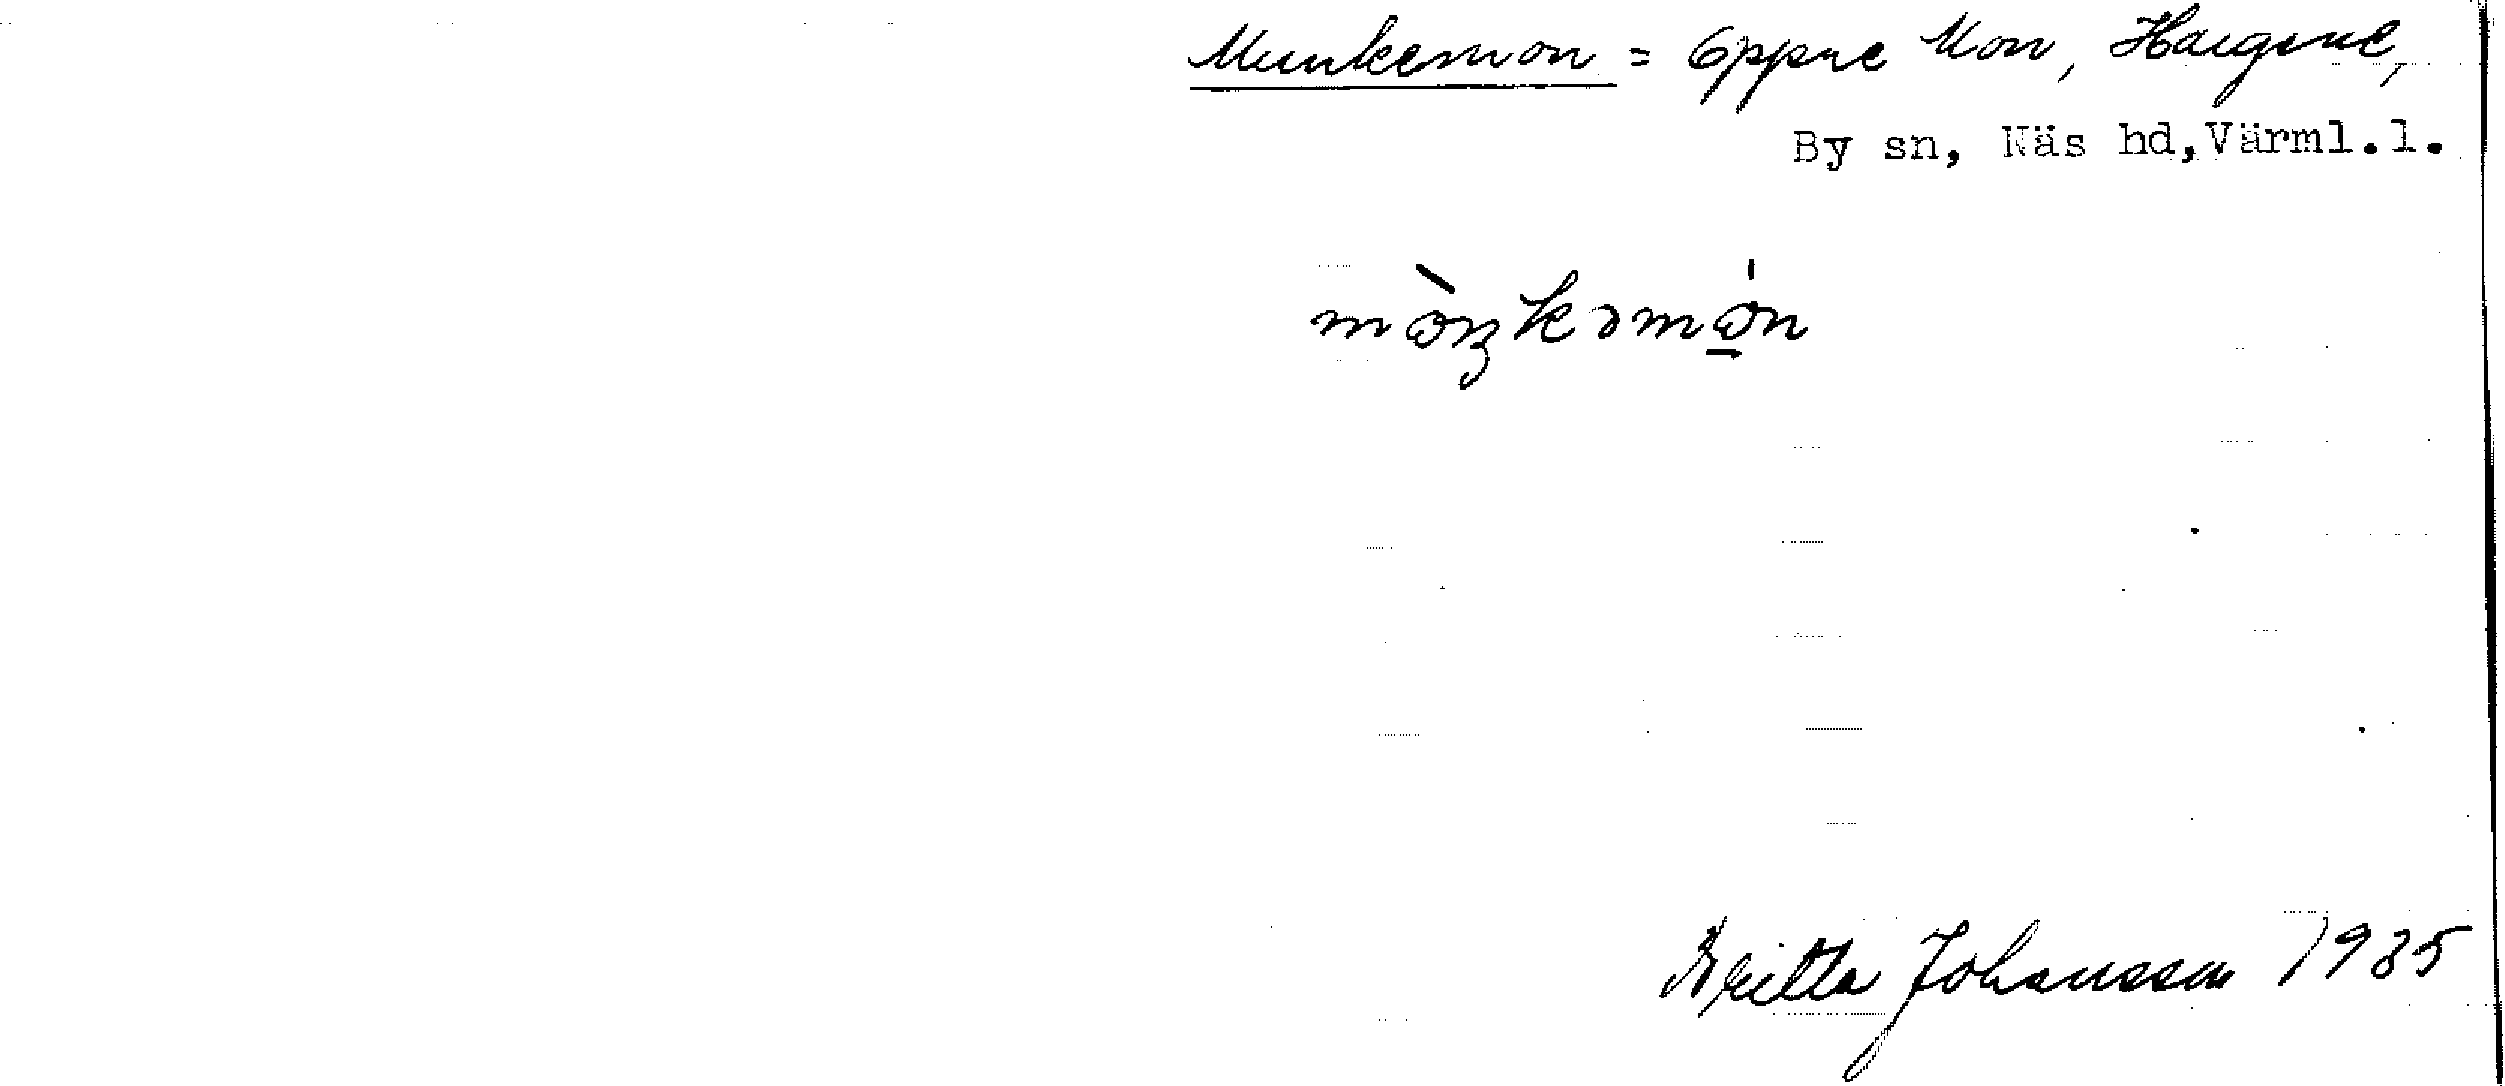 Munkemon = Öppne Mon, Haugene,
By sn, Näs hd, Värml. l.
mòŋkəmón
Britta Johansson 1985